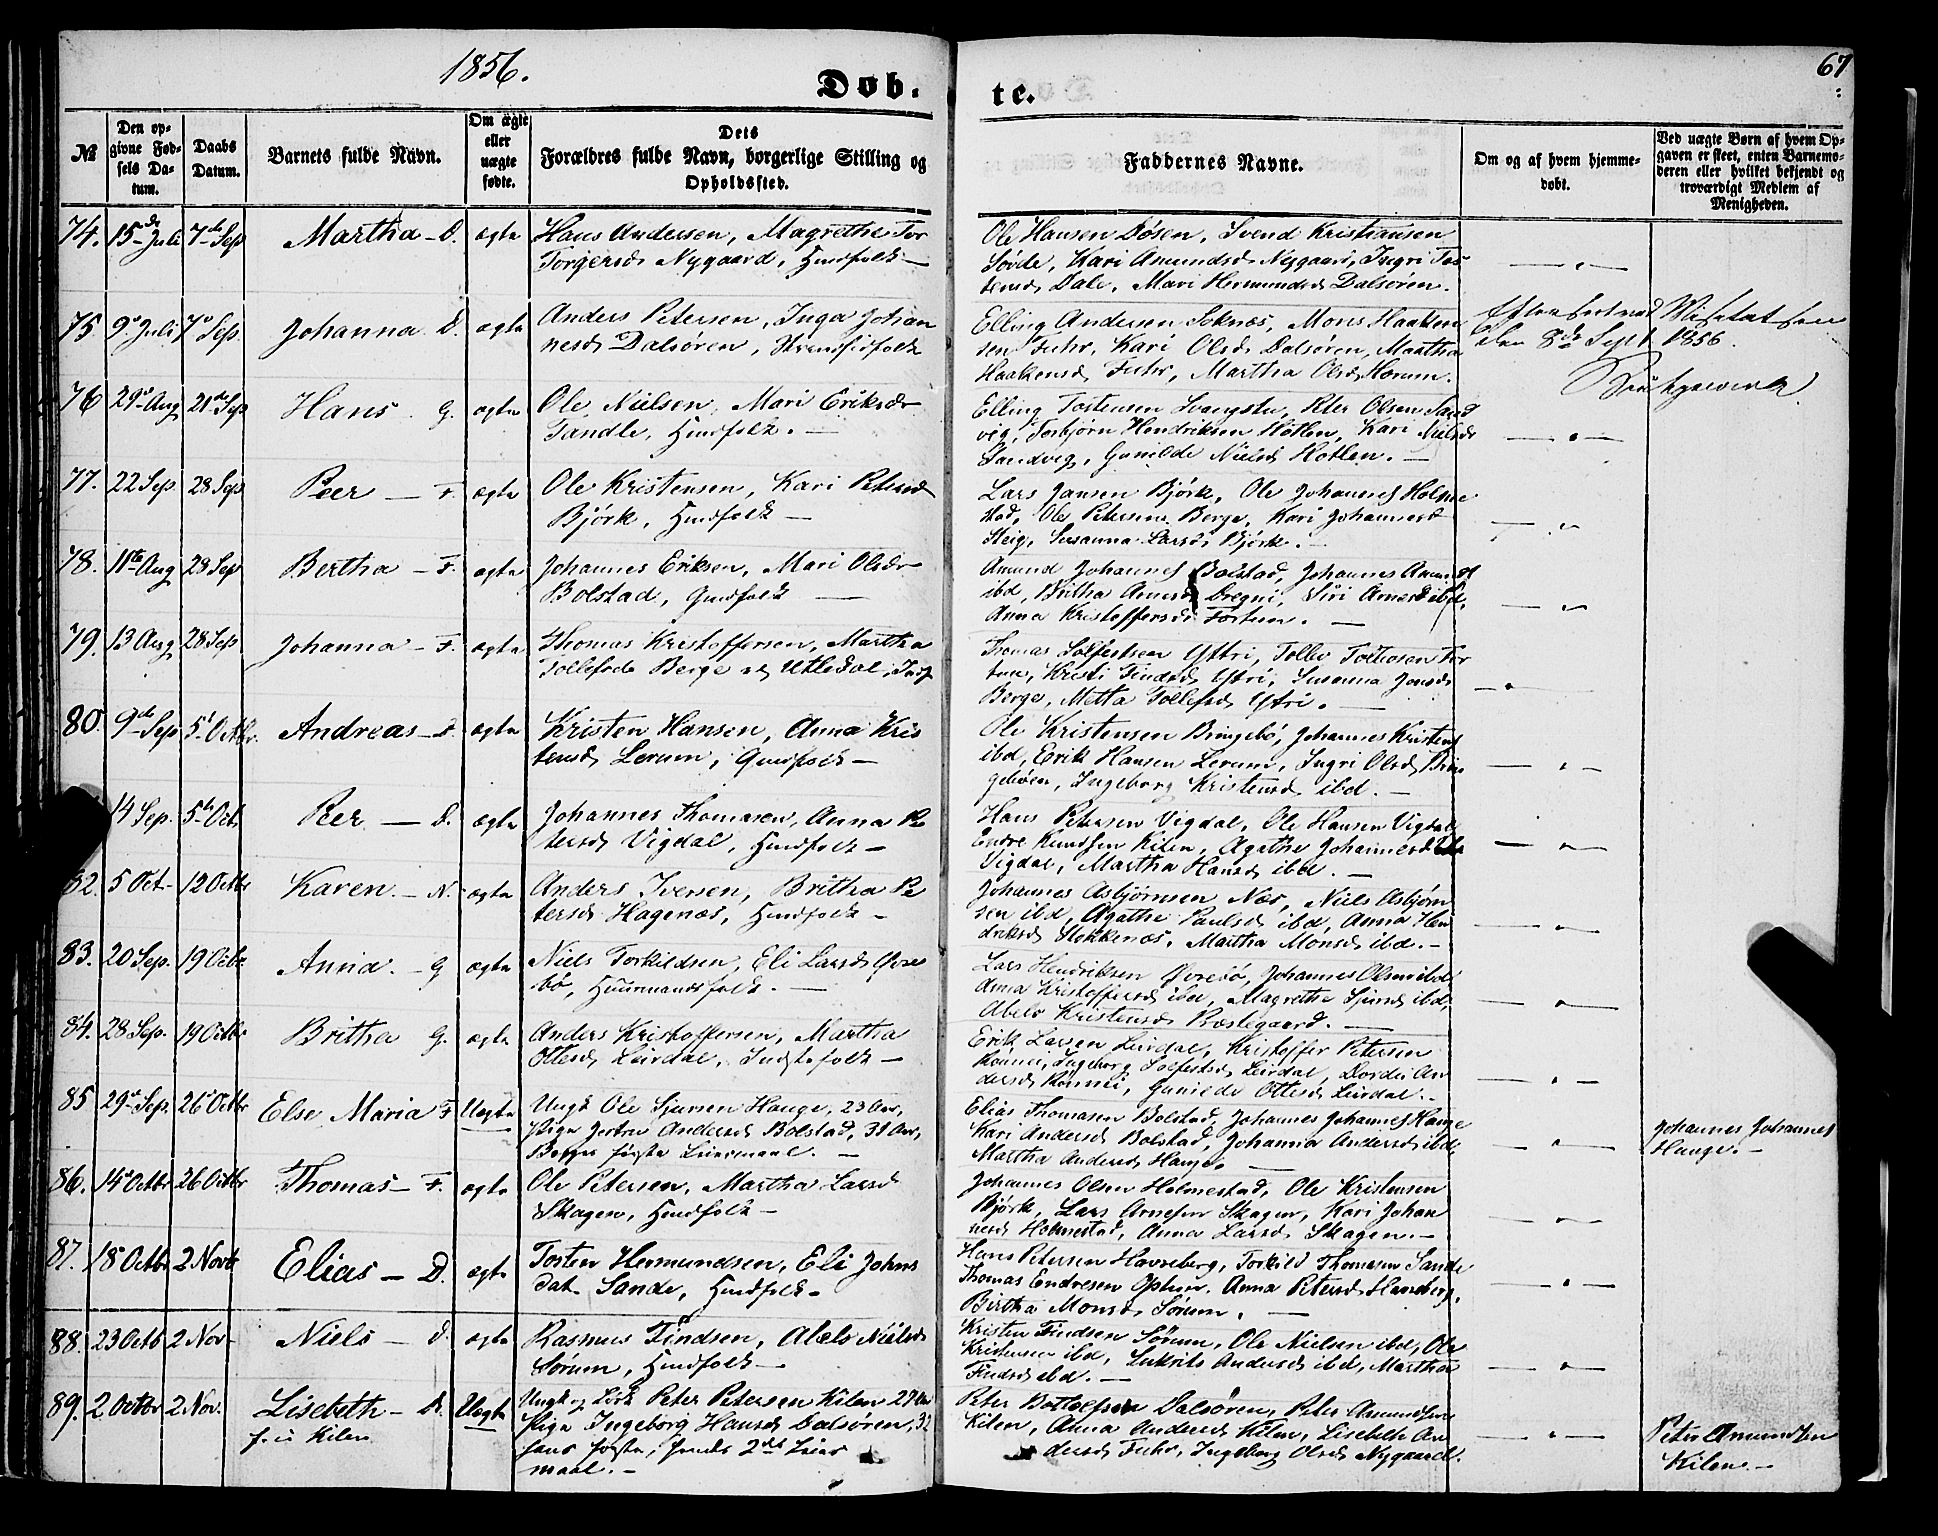 1856.
Døb-
te.
67
№
Den op-
givne Fød-
sels Da-
tum.
Daabs
Datum.
Barnets fulde Navn.
Om ägte
eller
uægte
fødte.
Dets
Forældres fulde Navn, borgerlige Stilling og
Opholdssted.
Faddernes Navne.
Om og af hvem hjemme-
døbt.
Ved uægte Børn af hvem Op-
gaven er skeet, enten Barnemo-
deren eller hvilket bekjendt og
troværdigt Medlem af
Menigheden.
74. 15de Juli 7de Sep Martha - D. ægte
Hans Andersen, Magrethe Tor
Torgersd Nygaard, Huusfolk -
Ole Hansen Døsen, Svend Kristiansen
Søvde, Kari Amundsd Nygaard, Ingri Tos-
tensd Dale, Mari Hermundsd Dalsøren.
75. 9de Juli 7de Sep. Johanna D. ægte
Anders Petersen, Inga Johan
nesd Dalsøren, Strandsidfolk
Elling Andersen Soknæs, Mons Haaken
sen Fuhr, Kari Olsd Dalsøren, Martha
Haakensd Fuhr, Martha Olsd Morum.
Efterseet ved Visitatsen
den 8de Sept 1856.
76 29de Aug 21de Sep Hans. G. ægte
Ole Nielsen, Mari Eriksdr
Tandle, Huusfolk. -
Elling Tostensen Svangstu, Peter Olsen Sand
vig, Torbjørn Hendriksen Hotlen, Kari Nielsdr
Sandvig, Gunilde Nielsd Hotlen. -
77. 22 Sep 28 Sep Peer - F. ægte
Ole Kristensen, Kari Petersd
Bjørk, Huusfolk -
Lars Jansen Bjørk, Ole Johannes Holme
stad, Ole Petersen Berge, Kari Johannesd
Steig, Susanna Larsd Bjørk. -
78. 11te Aug 28 Sep Bertha - F. ægte
Johannes Eriksen, Mari Olsdr
Bolstad, Gmdfolk -
Amund Johannes Bolstad, Johannes Amunds
ibd, Britha Arnesd Dregni, Siri Arnesd ibd,
Anna Kristoffersd Fortun. -
79. 13 Aug 28 Sep Johanna - F. ægte
Thomas Kristoffersen, Martha
Tollefsd Berge og Utledal, Indf
Thomas Solfestsen Ytri, Tollev Tollevsen For
tun, Kristi Findsd Ytri, Susanna Jensd
Berge, Metta Tollefsd Ytri. -
80. 9de Sep 5te Octbr. Andreas - D. ægte
Kristen Hansen, Anna Kris
tensd Lerum, Gmdfolk -
Ole Kristensen Bringebø, Johannes Kristens
ibd, Erik Hansen Lerum, Ingri Olsd Brin
gebøen, Ingeborg Kristensd ibd. -
14 Sep. 5te Oct Peer - D. ægte
Johannes Thomasen, Anna Pe
tersd Vigdal, Huusfolk -
Hans Petersen Vigdal, Ole Hansen Vigdal
Endre Knudsen Kilen, Agathe Johannesd
Vigdal, Martha Hansd ibd. -
82. 5 Oct - 12 Octbr Karen. - N. ægte
Anders Iversen, Britha Pe
tersd Hagenæs, Huusfolk -
Johannes Asbjørnsen Næs, Niels Asbjørn
sen ibd, Agathe Paulsd ibd, Anna Hen
driksd Stokkenæs, Martha Monsd ibd. -
83. 20 Sep. 19 Octbr Anna. - G ægte
Niels Torkildsen, Eli Larsd Øvre
bø, Huusmandsfolk. -
Lars Hendriksen Øvrebø, Johannes Olsen ibd
Anna Kristoffersd ibd, Magrethe Sjursd ibd,
Abelo Kristensd Præstegaard. -
84. 28 Sep. 19 Octbr Britha G. ægte
Anders Kristoffersen, Martha
Ottesd Leirdal, Indstefolk -
Erik Larsen Leirdal, Kristoffer Petersen
Rønnei, Ingeborg Solfestsd Leirdal, Dordei An
dersd Rønnei, Gunilde Ottesd Leirdal. -
85 29de Sep. 26de Octbr Else Maria F Uægte
Ungk Ole Sjursen Hauge, 23 Aar,
Pige Jertru Andersd Bolstad, 31 Aar,
Begges første Leiermaal. -
Elias Thomasen Bolstad, Johannes Johannes Hauge
Kari Andersd Bolstad, Johanna Andersd ibd
Martha Andersd Hauge. -
Johannes Johannes
Hauge. -
86. 14de Octbr 26 Octbr Thomas - F. ægte
Ole Petersen, Martha Larsd
Skagen, Huusfolk -
Johannes Olsen Holmestad, Ole Kristensen
Bjørk, Lars Arnesen Skagen, Kari Johan
nesd Holmestad, Anna Larsd Skagen. -
87. 18 Octbr 2 Novbr Elias - D. ægte
Tosten Hermundsen, Eli Johns
dat. Sande, Huusfolk -
Hans Petersen Havreberg, Torkild Thomasen Sande
Thomas Endresen Opheim, Anna Petersd Havreberg,
Birtha Monsd Sørum. -
88. 23 Octb 2 Nov - Niels - D. ægte
Rasmus Findsen, Abelo Nielsd
Sørum, Huusfolk -
Kristen Findsen Sørum, Ole Nielsen ibd, Ole
Kristensen ibd, Lukrits Andersd ibd, Martha
Findsd ibd. -
89. 2 Octbr 2 Nov. Lisebeth - D. Uægte
f. i Kilen
Ungk og Løsk Peter Petersen Kilen 27 Aar
Pige Ingeborg Hansd Dalsøren, 32
hans første, hendes 2det Leier
maal. -
Peter Bottolfsen Dalsøren, Peter Amundsen
Kilen, Anna Andersd Kilen, Lisebeth An
dersd Fuhr, Ingeborg Olsd Nygaard.
Peter Amundsen
Kilen. -